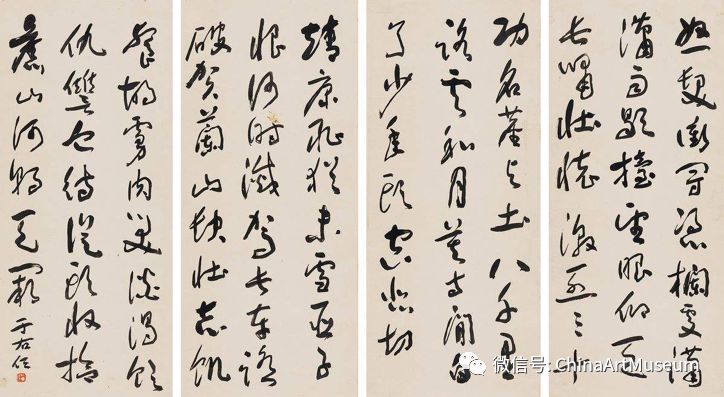 怒髮衝冠憑欄處瀟
瀟雨歇擡望眼仰天
長嘯壯懷激烈三十
功名塵與土八千里
路雲和月莫等閒白
了少年頭空悲切
靖康恥猶未雪臣子
恨何時滅駕長車踏
破賀蘭山缺壯志飢
餐胡虜肉笑談渴飲
仇讎血待從頭收拾
舊山河朝天闕 于右任
微信号: ChinaArtMuseum